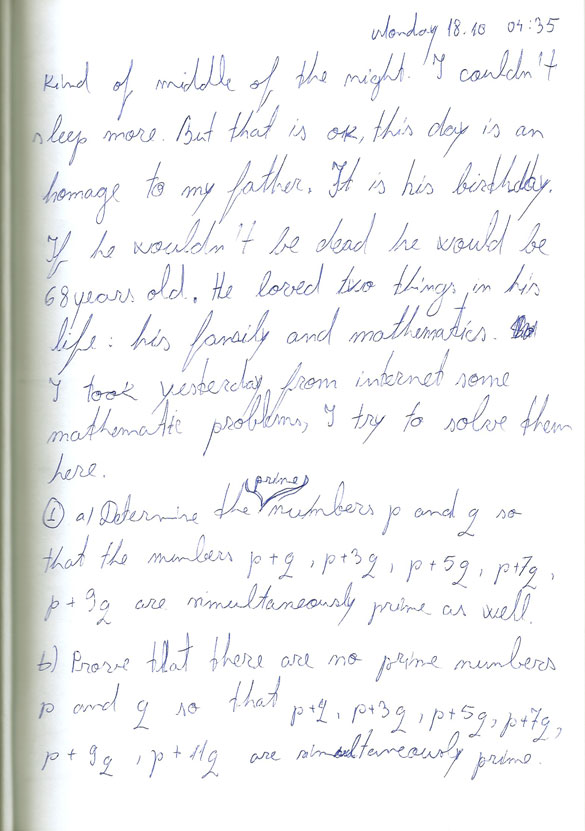 Monday 18.10 04:35
Kind of middle of the night. I couldn't
sleep more. But that is ok, this day is an
homage to my father. It is his birthday.
If he wouldn't be dead he would be
68 years old. He loved two things in his
life: his family and mathematics.
I took yesterday from internet some
mathematic problems, I try to solve them
here.
prime
① a) Determine the numbers p and q so
that the numbers p+q, p+3q, p+5q, p+7q,
p+9q are simultaneously prime as well.
b) Prove that there are no prime numbers
p and q so that p+q, p+3q, p+5q, p+7q,
p+9q, p+11q are simultaneously prime.